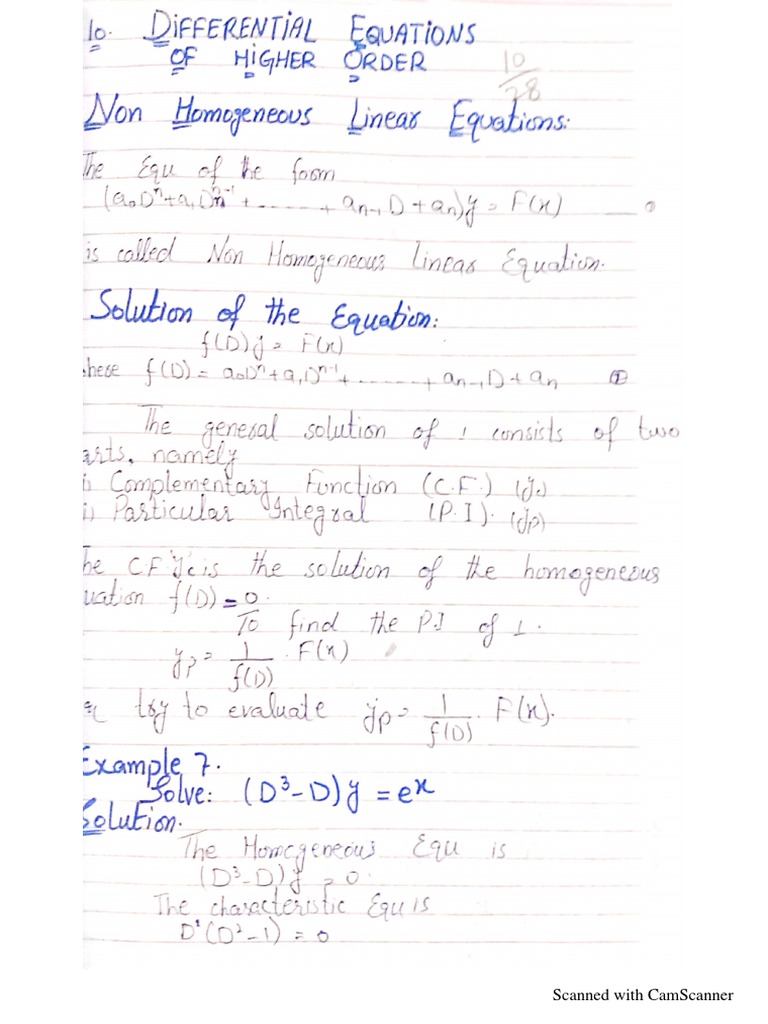 10. DIFFERENTIAL EQUATIONS
OF HIGHER ORDER
10/28
Non Homogeneous Linear Equations:
The Equ of the form
(a₀Dⁿ+a₁Dⁿ⁻¹+.......+ aₙ₋₁D+aₙ)y = F(x)
is called Non Homogeneous Linear Equation.
Solution of the Equation:
f(D)y = F(x)
here f(D) = a₀Dⁿ+a₁Dⁿ⁻¹+.......+ aₙ₋₁D+aₙ ①
The general solution of 1 consists of two
arts, namely
i) Complementary Function (C.F.) (yc)
i) Particular Integral (P.I). (yp)
he C.F yc is the solution of the homogeneous
uation f(D) = 0.
To find the P.I of 1.
yp = 1/f(D) . F(x)
try to evaluate yp = 1/f(D) . F(x).
Example 7.
Solve: (D³-D)y = eˣ
Solution.
The Homogeneous Equ is
(D³-D)y = 0.
The characteristic Equ is
D(D²-1) = 0
Scanned with CamScanner